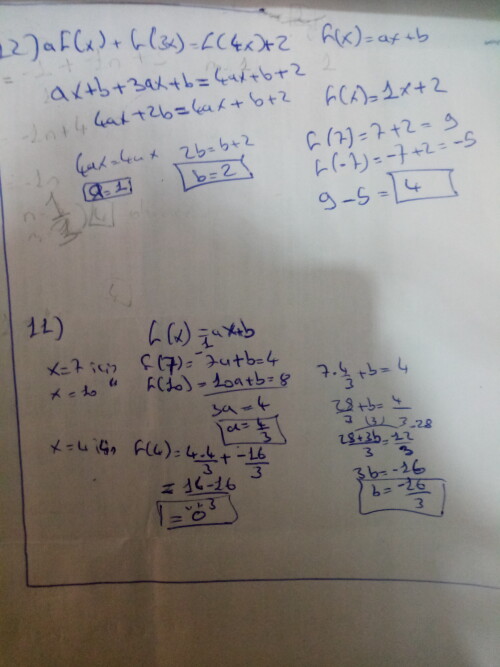 12) a f(x) + f(3x) = f(4x) + 2
f(x) = ax + b
ax + b + 3ax + b = 4ax + b + 2
4ax + 2b = 4ax + b + 2
f(x) = 1x + 2
4ax = 4ax
2b = b + 2
f(7) = 7 + 2 = 9
a = 1
b = 2
f(-7) = -7 + 2 = -5
9 - 5 = 4
11)
f(x) = ax + b
x = 7 için f(7) = 7a + b = 4
x = 10 " f(10) = 10a + b = 8
3a = 4
a = 4/3
7·4/3 + b = 4
28/3 + b = 4/1
28 + 3b/3 = 12/3
3b = -16
b = -16/3
x = 4 için f(4) = 4·4/3 + -16/3
= 16 - 16/3
= 0